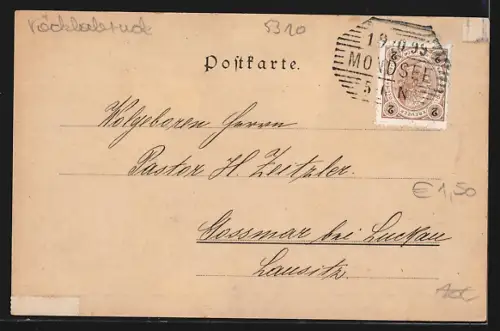 Vöcklabruck
5310
Postkarte.
19 10 95
MONDSEE
5 N
2 2
Wolgeboren Herrn
Pastor H. Zeitzler.
€ 1,50
Gossmar bei Luckau
Lausitz.